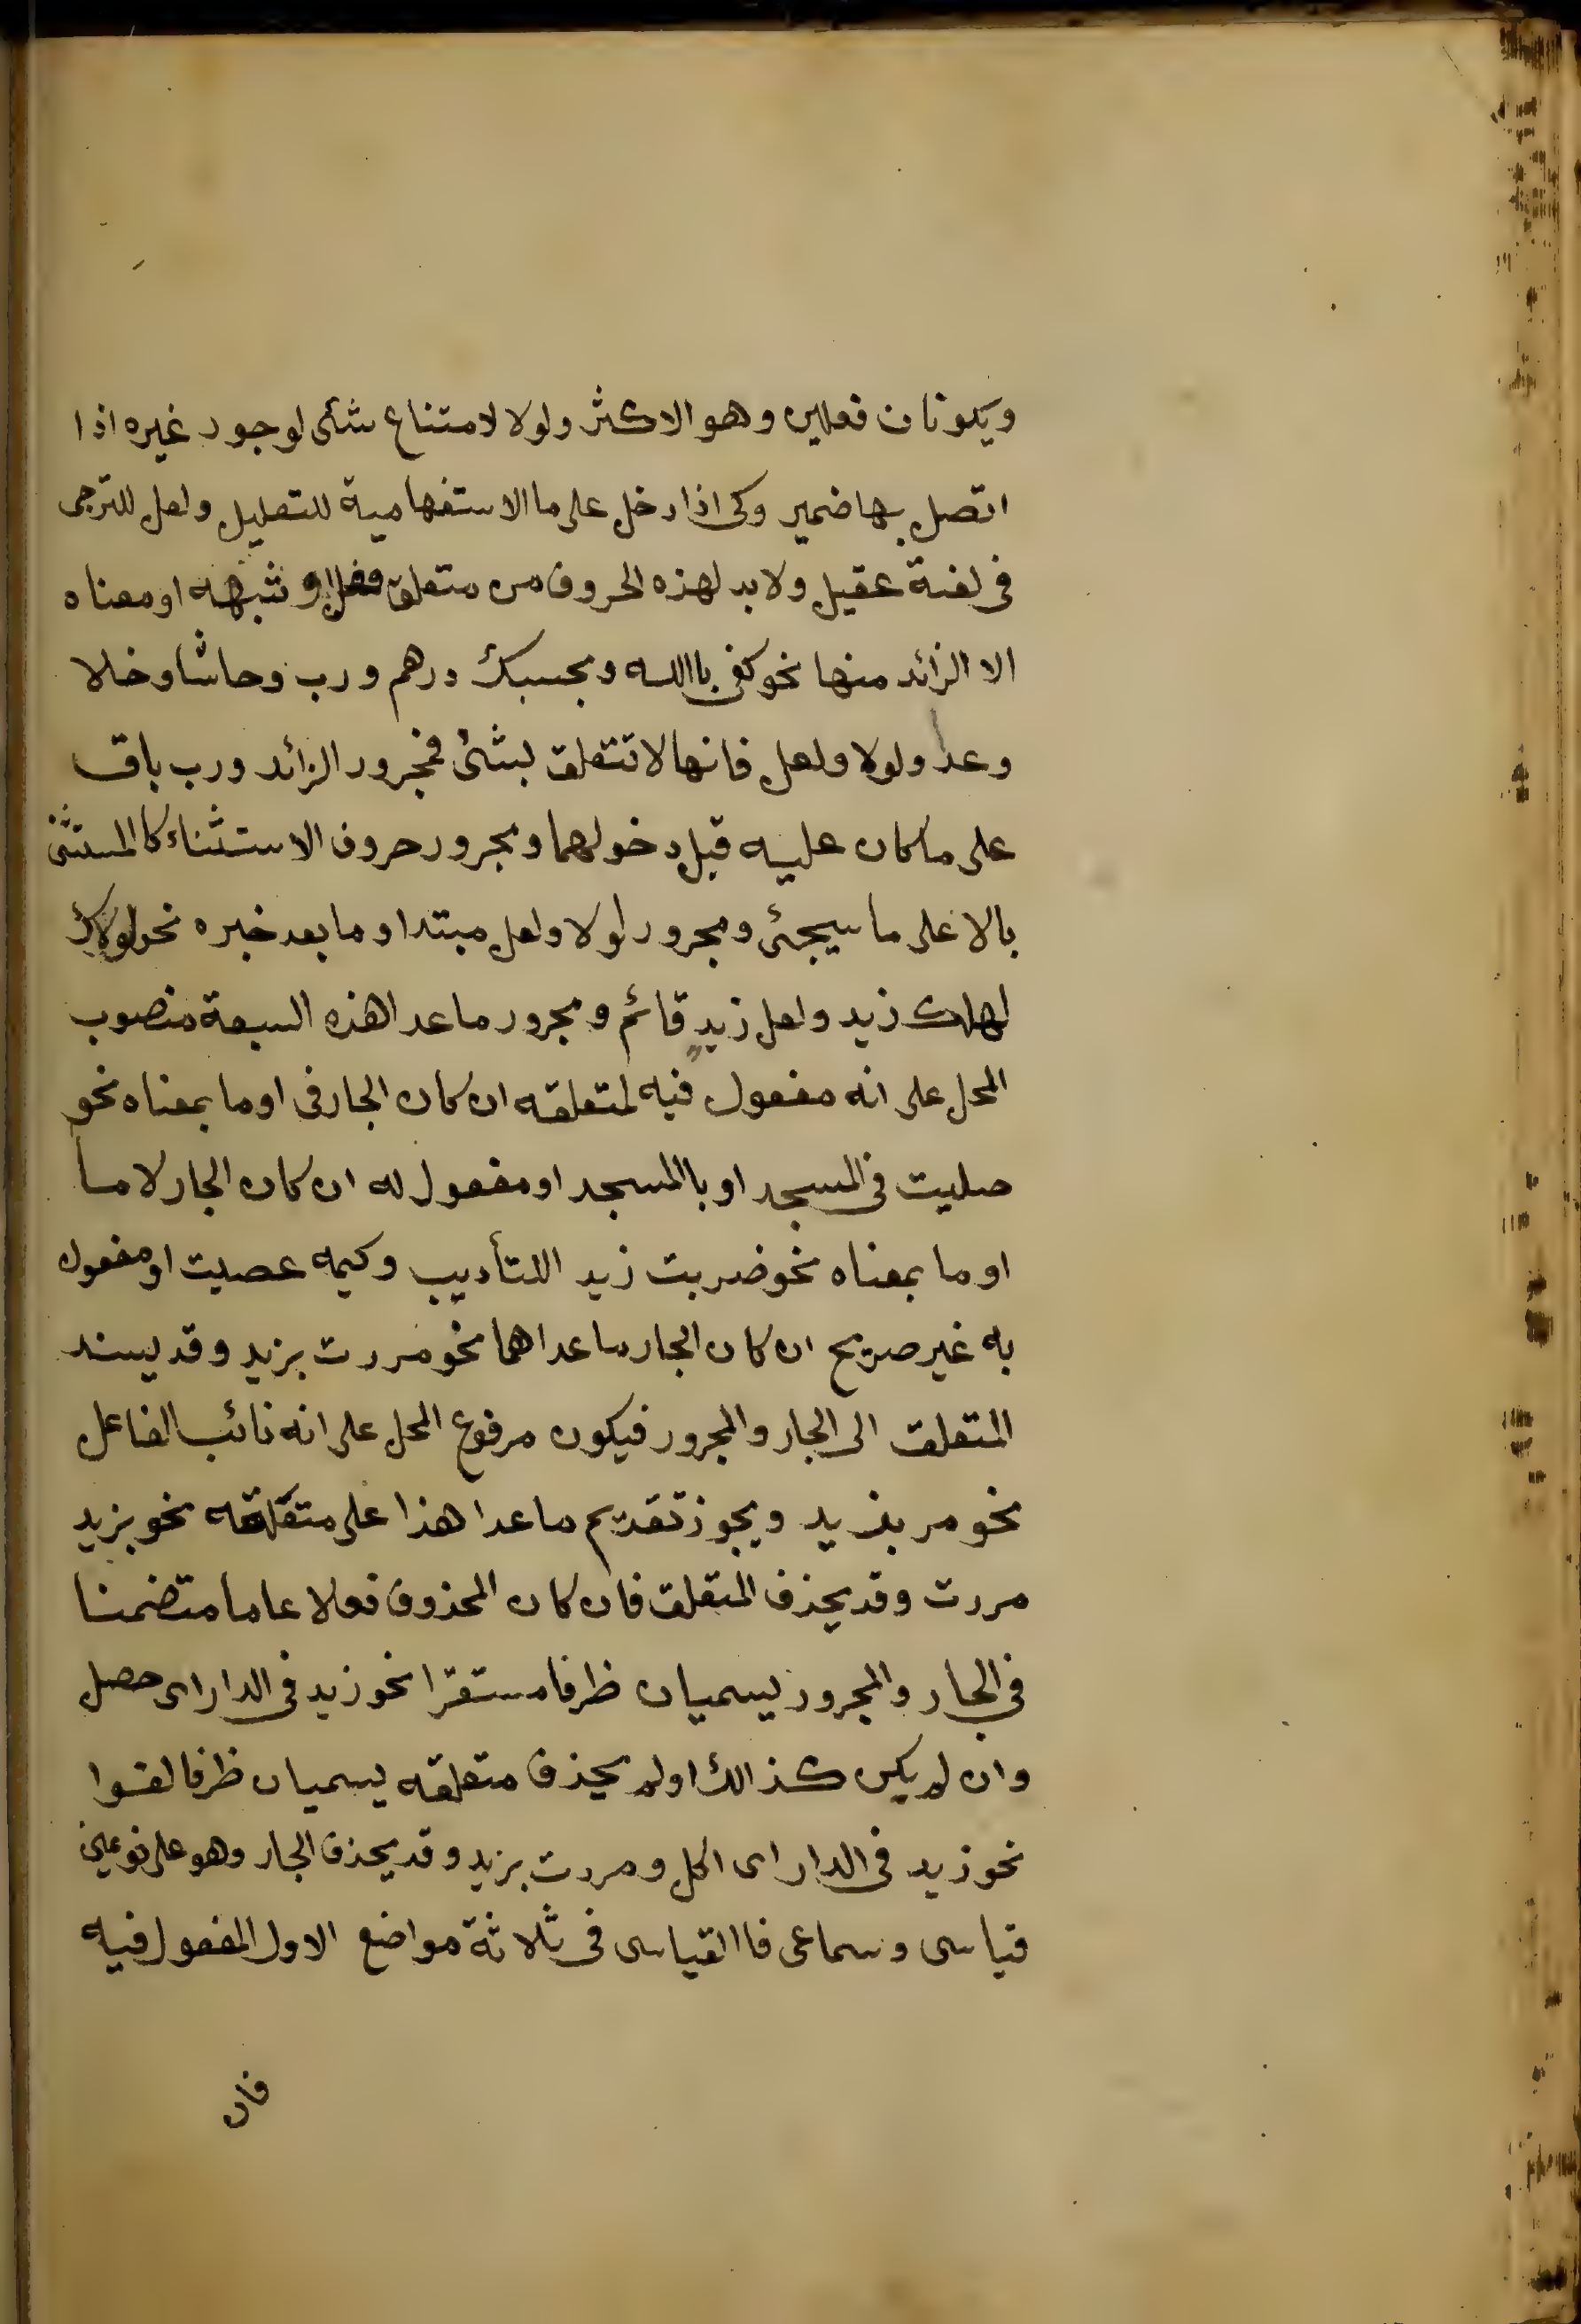 ويكونان فعلين وهو الاكثر ولولا لامتناع شئى لوجود غيره اذا
اتصل بها ضمير وكى اذا دخل على ما الاستفهامية للتعليل ولعل للترجى
فى لغة عقيل ولابد لهذه الحروف من متعلق فعل او شبهه او معناه
الا الزائد منها نحو كفى باالله وبحسبك درهم ورب وحاشا وخلا
وعدا ولولا ولعل فانها لا تتعلق بشئ فمجرور الزائد ورب باق
على ما كان عليه قبل دخولهما ومجرور حروف الاستثناء كا المستثنى
بالا على ما سيجئى ومجرور لولا ولعل مبتدا وما بعد خبره نحو لولاك
لهلك زيد ولعل زيدٍ قائم ومجرور ما عدا هذه السبعة منصوب
المحل على انه مفعول فيه لمتعلقه ان كان الجار فى او ما بمعناه نحو
صليت فى المسجد او باالمسجد او مفعول له ان كان الجار لاما
او ما بمعناه نحو ضربت زيد اللتأديب وكيمه عصيت او مفعول
به غير صريح ان كان الجار ما عداهما نحو مررت بزيد وقد يسند
المتعلق الى الجار والمجرور فيكون مرفوع المحل على انه نائب الفاعل
نحو مر بزيد ويجوز تقديم ما عدا هذا على متعلقه نحو بزيد
مررت وقد يحذف المتعلق فان كان المحذوف فعلا عاما متضمنا
فى الجار والمجرور يسميان ظرفا مستقرا نحو زيد فى الدار اى حصل
وان لم يكن كذالك او لم يحذف متعلقه يسميان ظرفا لغوا
نحو زيد فى الدار اى اكل ومررت بزيد وقد يحذف الجار وهو على نوعين
قياسى وسماعى فاالقياسى فى ثلاثة مواضع الاول المفعول فيه
فان